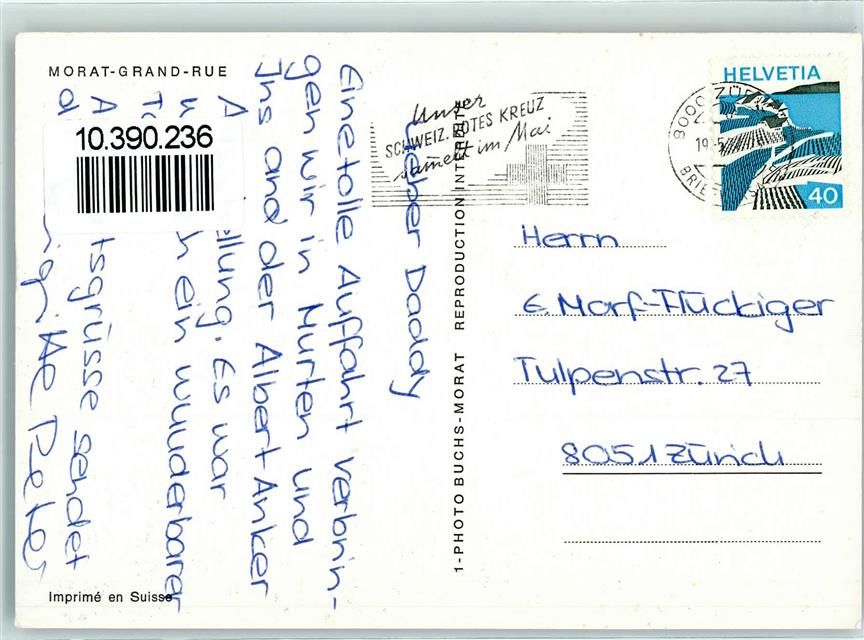 MORAT-GRAND-RUE
10.390.236
Lieber Daddy
Eine tolle Auffahrt verbrin-
gen wir in Murten und
Ins and der Albert-Anker
A llung. Es war
ein wuuderbarer
T
A tsgrüsse sendet
a
Peter
Imprimé en Suisse
1-PHOTO BUCHS-MORAT REPRODUCTION INTERDITE
Unser
SCHWEIZ. ROTES KREUZ
sammelt im Mai
8000 ZÜR
19.-5
BRIEF
HELVETIA
40
Herrn
E. Morf-Flückiger
Tulpenstr. 27
8051 Zürich